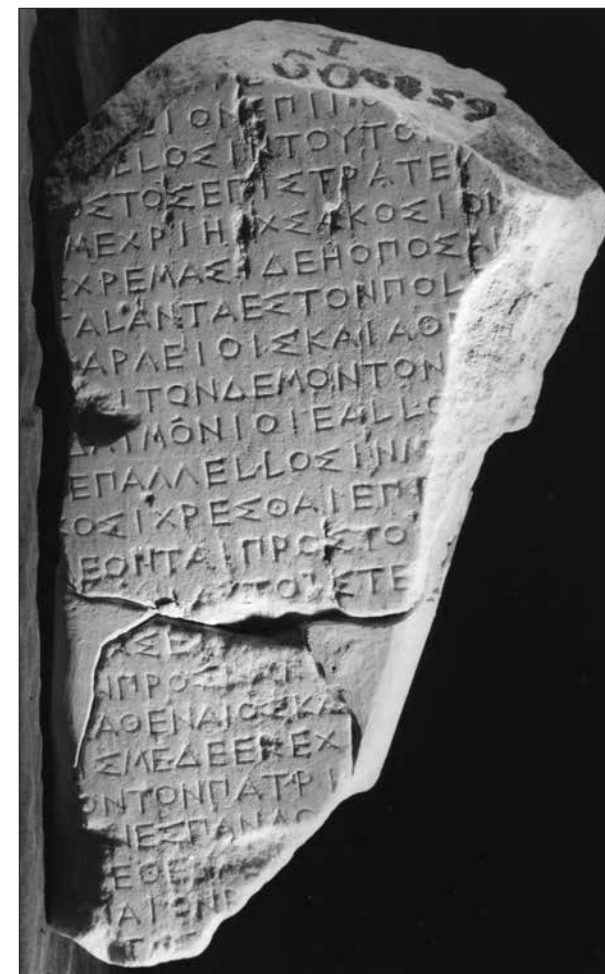 ΙΟΝΕΠΙΠΟ
LLΟΣΙΝΤΟΥΤΟ
ΟΣΤΟΣΕΠΙΣΤΡΑΤΕΥ
ΜΕΧΡΙΗ ΧΣ ΚΟΣΙΟΝ
ΧΡΕΜΑΣΙΔΕΗΟΠΟΣΑ
ΤΑLΑΝΤΑΕΣΤΟΝΠΟL
ΑΡΛΕΙΟΙΣΚΑΙΑΘ
ΙΤΟΝΔΕΜΟΝΤΟΝ
ΔΑΙΜΟΝΙΟΙΕΑLLΟ
ΕΠΑΛΛΕLLΟΣΙΝΙ
ΟΣΙΧΡΕΣΘΑΙΕΠ
ΕΟΝΤΑΙΠΡΟΣΤΟ
ΑΥΤΟΙΣΤΕ
ΑΣΕ
ΝΠΡΟΣ
ΑΘΕΝΑΙΟΣΚΑ
ΣΜΕΔΕΕΚΕΧ
ΟΝΤΟΝΠΑΤΡΙ
ΙΕΣΠΑΝΔ
ΕΘΕ
ΑΙΟΝ